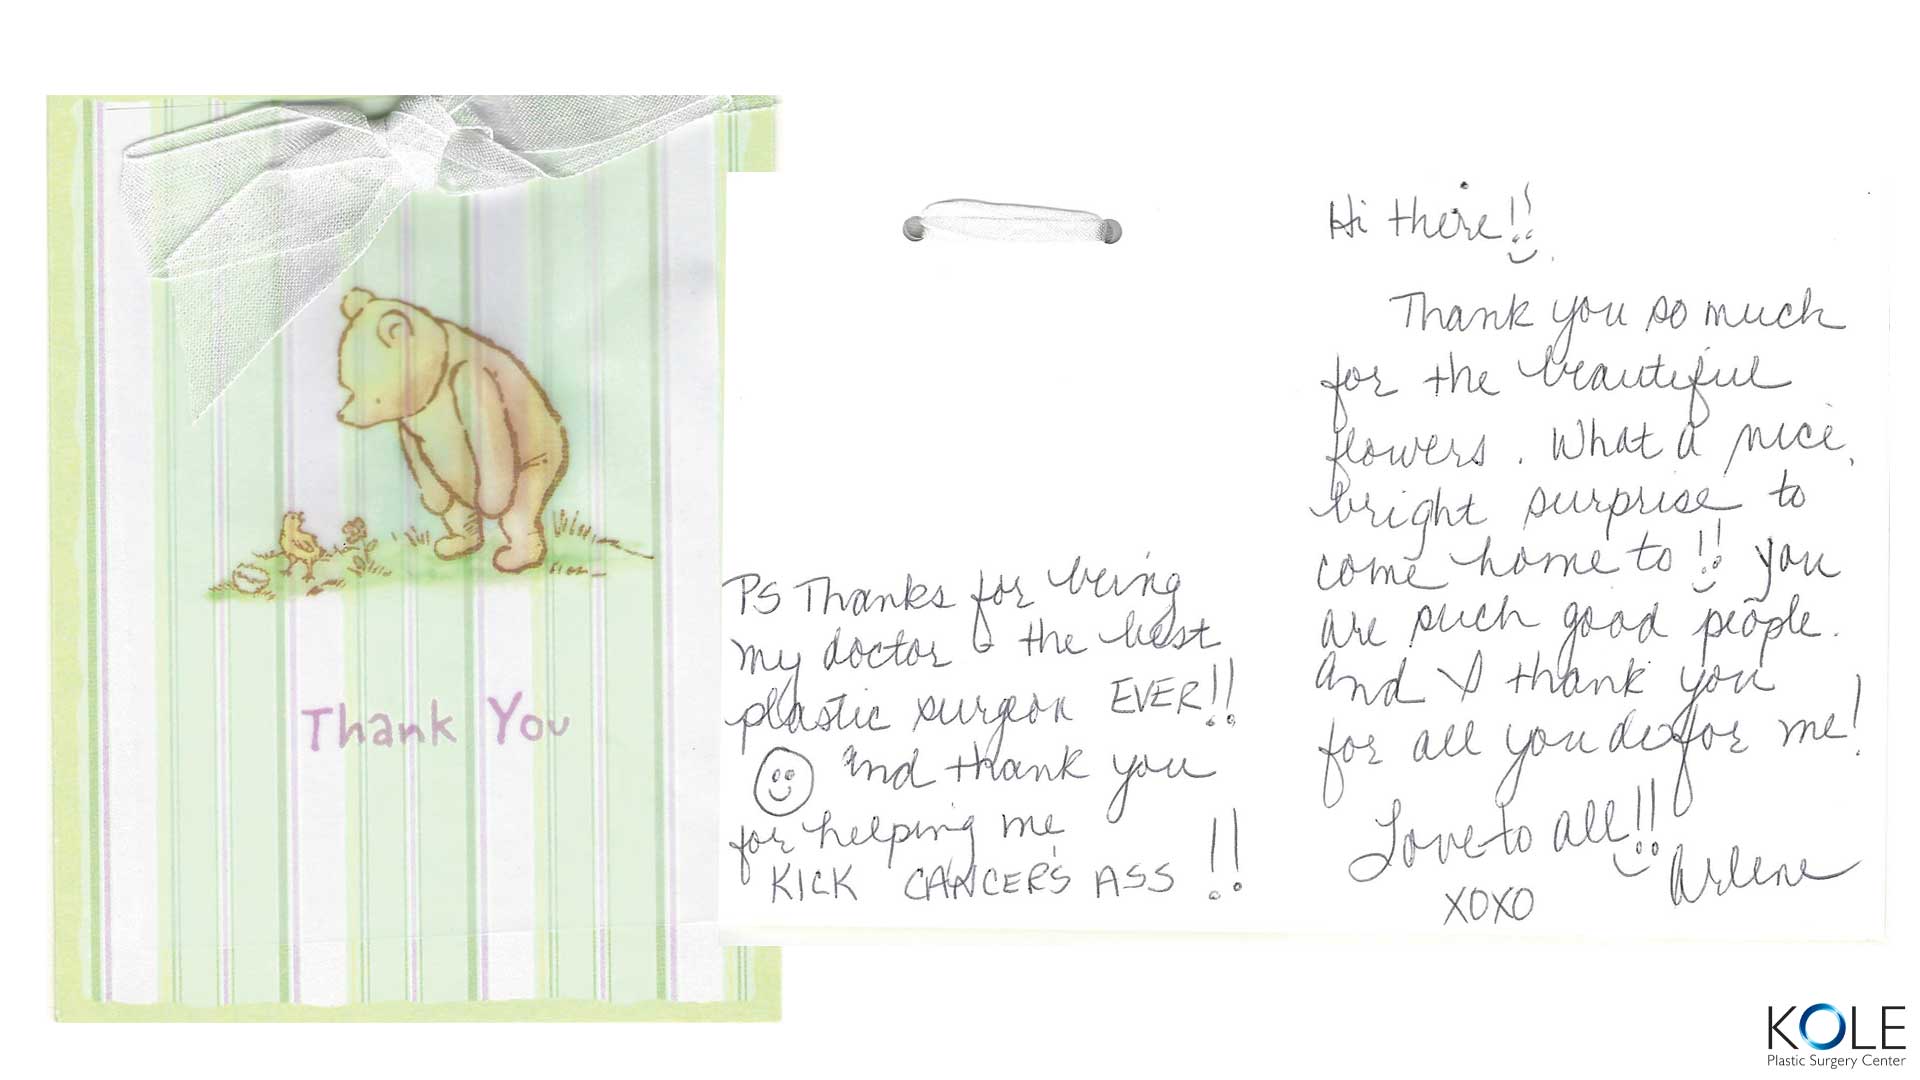 Thank You
Hi there!!
Thank you so much
for the beautiful
flowers. What a nice,
bright surprise to
come home to!! You
are such good people.
And I thank you
for all you do for me!
Love to all!!
Arlene
XOXO
PS Thanks for being
my doctor & the best
plastic surgeon EVER!!
And thank you
for helping me
KICK CANCER'S ASS !!
KOLE
Plastic Surgery Center